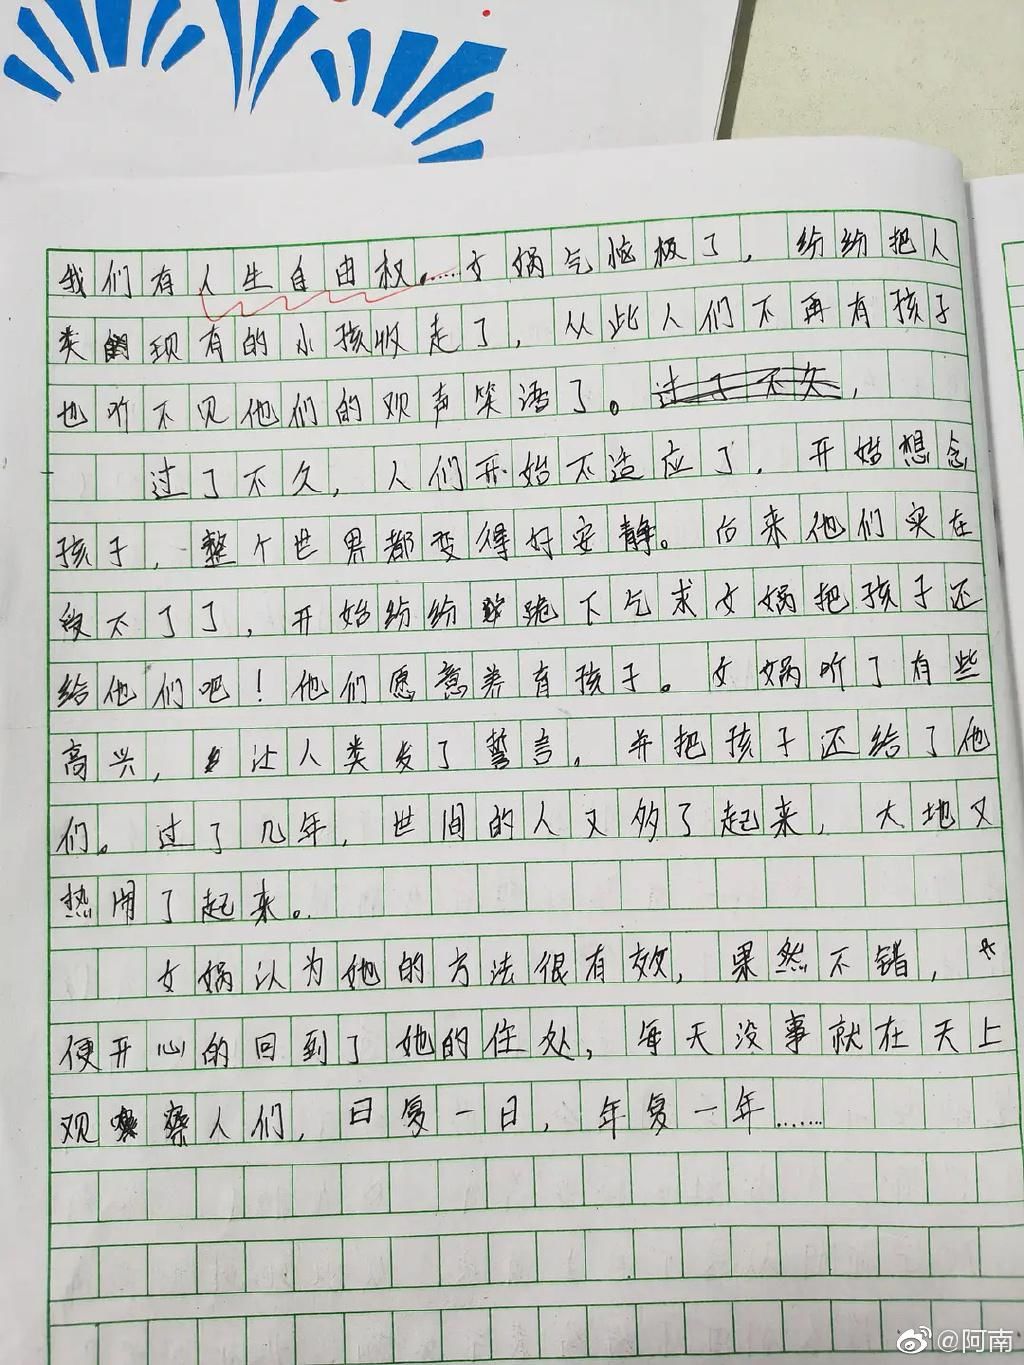 我们有人生自由权……女娲气恼极了，纷纷把人
类现有的小孩收走了，从此人们不再有孩子
也听不见他们的欢声笑语了。过了不久，
过了不久，人们开始不适应了，开始想念
孩子，整个世界都变得好安静。后来他们实在
受不了了，开始纷纷跪下乞求女娲把孩子还
给他们吧！他们愿意养育孩子。女娲听了有些
高兴，让人类发了誓言，并把孩子还给了他
们。过了几年，世间的人又多了起来，大地又
热闹了起来。
女娲认为她的方法很有效，果然不错，
便开心的回到了她的住处，每天没事就在天上
观察人们，日复一日，年复一年……
@阿南